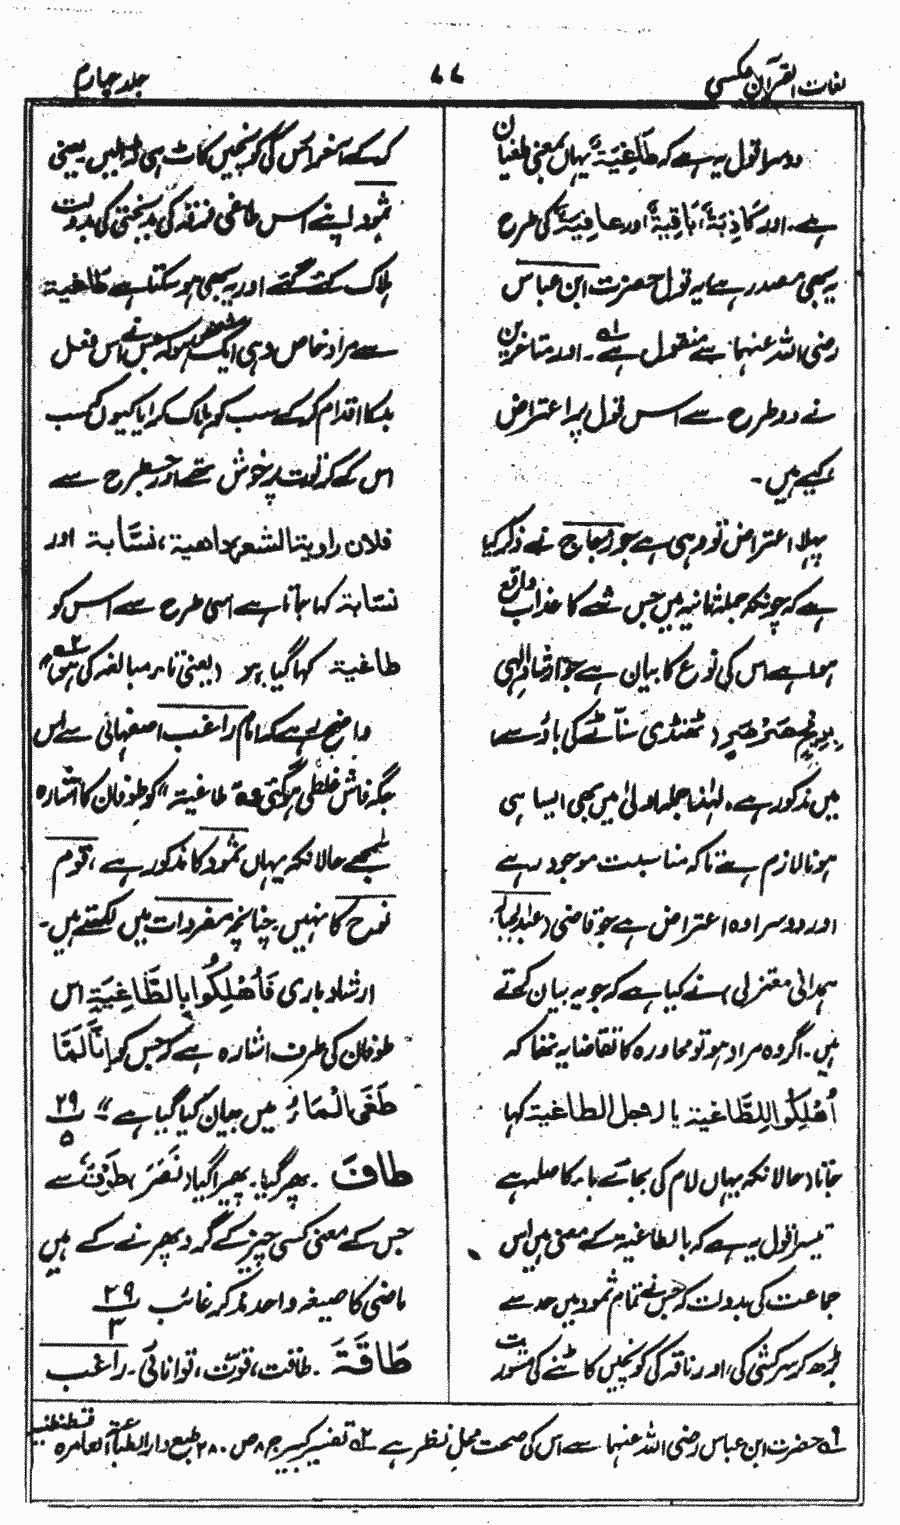 لغات القرآن عکسی
۷۷
جلد چہارم
دوسرا قول یہ ہے کہ طَاغِیَۃ یہاں بمعنی طغیان
ہے۔ اور کَاذِبَۃ، بَاقِیَۃ، اور عَافِیَۃ کی طرح
یہ بھی مصدر ہے، یہ قول حضرت ابن عباس
رضی اللہ عنہما سے منقول ہے۔ اور متاخرین
نے دو طرح سے اس قول پر اعتراض
کیے ہیں۔
پہلا اعتراض تو وہی ہے جو زجاج نے ذکر کیا
ہے کہ چونکہ جملہ ثانیہ میں جس شے کا عذاب واقع
ہوا ہے اس کی نوع کا بیان ہے جو ارشاد الٰہی
بِرِیْحٍ صَرْصَرٍ (ٹھنڈی سناٹے کی باؤ سے)
میں مذکور ہے، لہٰذا جملہ اولیٰ میں بھی ایسا ہی
ہونا لازم ہے تاکہ مناسبت موجود رہے
اور دوسرا وہ اعتراض ہے جو قاضی (عبدالجبار
ہمدانی معتزلی) نے کیا ہے کہ جو یہ بیان کرتے
ہیں۔ اگر وہ مراد ہو تو محاورہ کا تقاضا یہ تھا کہ
اُھْلِکُوا لِلطَّاغِیۃ یا لاجل الطاغیۃ کہا
جاتا (حالانکہ یہاں لام کی بجائے باء کا صلہ ہے
تیسرا قول یہ ہے کہ بالطاغیۃ کے معنی ہیں اس
جماعت کی بدولت کہ جس نے تمام ثمود میں حد سے
بڑھ کر سرکشی کی، اور ناقہ کی کونچیں کاٹنے کی مشورت
کر کے سفر اس کی کونچیں کاٹ ہی ڈالیں یعنی
ثمود اپنے اس طاغی فرقہ کی بدبختی کی بدولت
ہلاک کئے گئے اور یہ بھی ہو سکتا ہے طاغیۃ
سے مراد خاص وہی ایک شخص ہو کہ جس نے اس فعل
بد کا اقدام کر کے سب کو ہلاک کرایا کیوں کہ سب
اس کے کرتوت پر خوش تھے اور جس طرح سے
فلان راویۃ الشعر، داھیۃ، نَسَّابۃ اور
نسّابۃ کہا جاتا ہے اسی طرح سے اس کو
طاغیۃ کہا گیا ہو (یعنی تاء مبالغہ کی ہو)
واضح رہے کہ امام راغب اصفہانی سے اس
جگہ فاش غلطی ہو گئی وہ طاغیۃ کو طوفان کا اشارہ
سمجھے حالانکہ یہاں ثمود کا مذکور ہے، قوم
نوح کا نہیں چنانچہ مفردات میں لکھتے ہیں۔
ارشاد باری فَاُھْلِکُوا بِالطَّاغِیَۃِ اس
طوفان کی طرف اشارہ ہے کہ جس کو اِنَّا لَمَّا
طَغَی الْمَاءُ میں بیان کیا گیا ہے" ۲۹/۵
طَافَ۔ پھر گیا۔ پھرا گیا (نَصَرَ) طَوْف سے
جس کے معنی کسی چیز کے گرد پھرنے کے ہیں
ماضی کا صیغہ واحد مذکر غائب ۲۹/۳
طَاقَۃَ۔ طاقت، قوت، توانائی۔ راغب
۱؎ حضرت ابن عباس رضی اللہ عنہما سے اس کی صحت محل نظر ہے ۲؎ تفسیر کبیر ج ۸ ص ۲۸۰ طبع دار الطباعۃ العامرہ قسطنطنیہ